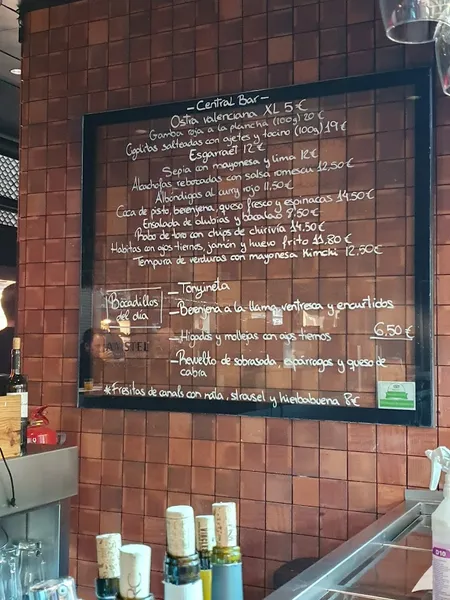 - Central Bar -
Ostra valenciana XL 5€
Gamba roja a la plancha (100g) 20€
Cigalitas salteadas con ajetes y tocino (100g) 19€
Esgarraet 12€
Sepia con mayonesa y lima 12€
Alcachofas rebozadas con salsa romescu 12,50€
Albóndigas al curry rojo 11,50€
Coca de pisto, berenjena, queso fresco y espinacas 14,50€
Ensalada de alubias y bacalao 8,50€
Rabo de toro con chips de chirivía 14,50€
Habitas con ajos tiernos, jamón y huevo frito 11,80€
Tempura de verduras con mayonesa Kimchi 12,50€
Bocadillos
del día
- Tonyineta
- Berenjena a la llama, ventresca y encurtidos
- Higados y mollejas con ajos tiernos 6,50€
- Revuelto de sobrasada, espárragos y queso de
cabra
* Fresitas de canals con nata, streusel y hierbabuena 8€